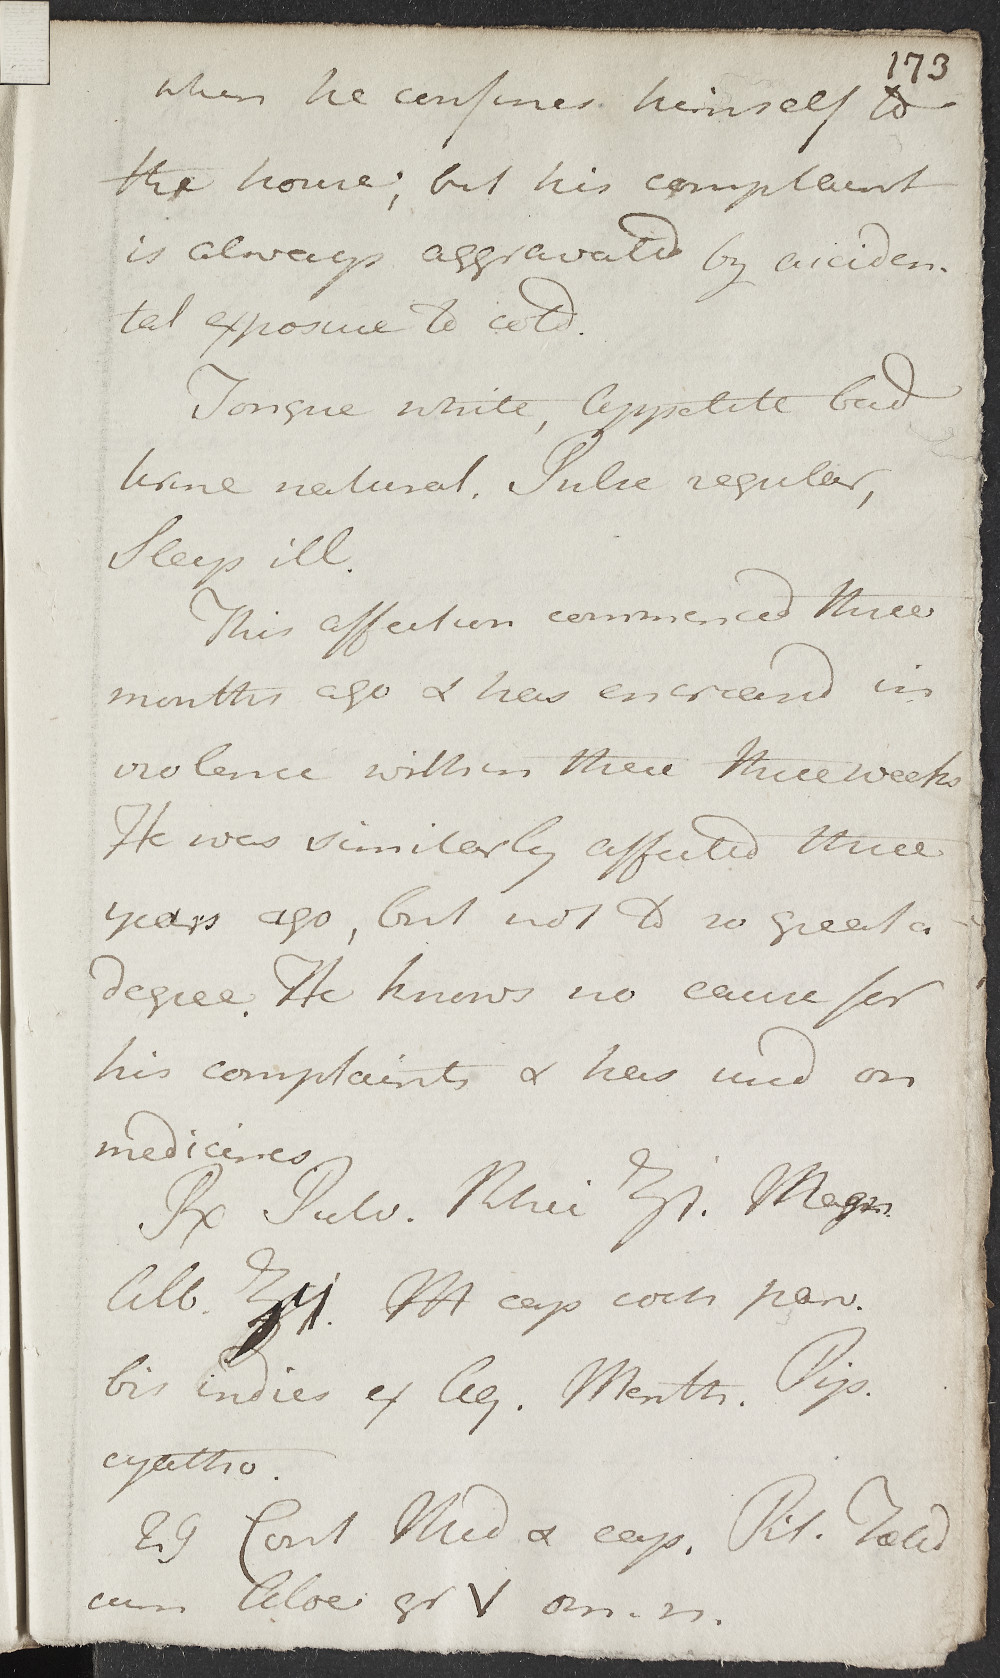 173
when he confines himself to
the house; but his complaint
is always aggravated by acciden-
tal exposure to cold.
Tongue white, Appetite bad
Urine natural. Pulse regular,
Sleep ill.
This affection commenced three
months ago & has encreased in
violence within these three weeks
He was similarly affected three
years ago, but not to so great a
degree. He knows no cause for
his complaints & has used on
medicines
Rx Pulv. Rhei ʒj. Magn.
Alb. ʒij. M cap coch parv.
bis indies ex Aq. Menth. Pip.
cyatho.
29 Cont Med & cap. Pil.
cum Aloe gr V om. n.